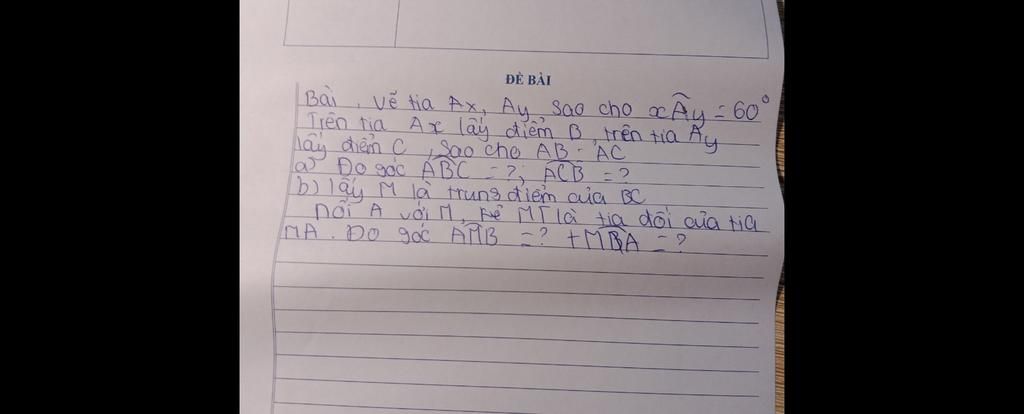 ĐỀ BÀI
Bài, vẽ tia Ax, Ay sao cho xÂy = 60°
Trên tia Ax lấy điểm B, trên tia Ay
lấy điểm C, sao cho AB = AC
a) Đo góc ABC = ?; ACB = ?
b) lấy M là trung điểm của BC
nối A với M, kẻ MT là tia đối của tia
MA. Đo góc AMB = ? + MBA = ?